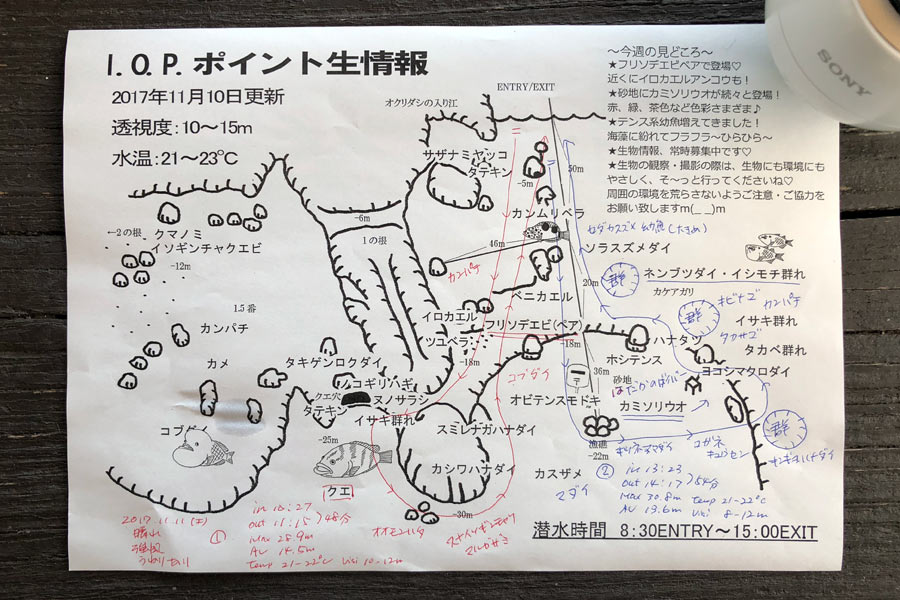 I.O.P.ポイント生情報
2017年11月10日更新
透視度:10～15m
水温:21～23℃
～今週の見どころ～
★フリソデエビペアで登場♡
近くにイロカエルアンコウも!
★砂地にカミソリウオが続々と登場!
赤、緑、茶色など色彩さまざま♪
★テンス系幼魚増えてきました!
海藻に紛れてフラフラ～ひらひら～
★生物情報、常時募集中です♡
★生物の観察・撮影の際は、生物にも環境にも
やさしく、そ～っと行ってくださいね♡
周囲の環境を荒らさないようご注意・ご協力を
お願い致しますm(_ _)m
SONY
ENTRY/EXIT
オクリダシの入り江
サザナミヤッコ
タテキン
-5m
50m
カンムリベラ
-6m
1の根
46m
カンパチ
ソラスズメダイ
←2の根
クマノミ
イソギンチャクエビ
-12m
ネンブツダイ・イシモチ群れ
群
カケアガリ
20m
ベニカエル
キビナゴ
カンパチ
1.5番
カンパチ
イロカエル
フリソデエビ(ペア)
ツユベラ
-18m
-18m
群
イサキ群れ
タカサゴ
タカベ群れ
ハナタツ
ホシテンス
ヨコシマクロダイ
カメ
タキゲンロクダイ
36m
〒
砂地
コブダイ
ノコギリハギ
クエ穴
ヌノサラシ
タテキン
イサキ群れ
オビテンスモドキ
カミソリウオ
コブダイ
スミレナガハナダイ
漁礁
-22m
群
-25m
クエ
カシワハナダイ
カスザメ
マダイ
-30m
2017.11.11(土)
晴れ
強風
①
in 10:27
out 11:15 〉48分
Max 28.9m
AV 14.5m
temp 21-22℃ Visi 10-12m
②
in 13:23
out 14:17 〉54分
Max 30.8m temp 21-22℃
AV 13.6m Visi 8-12m
潜水時間 8:30ENTRY～15:00EXIT